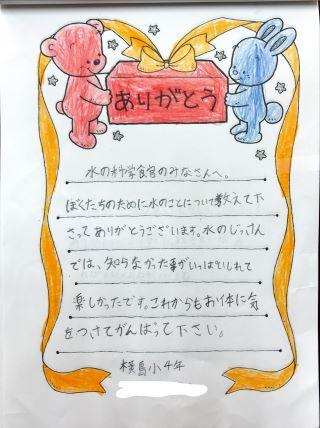 ありがとう
水の科学館のみなさんへ。
ぼくたちのために水のことについて教えて下
さってありがとうございます。水のじっけん
では、知らなかった事がいっぱいしれて
楽しかったです。これからもお体に気
をつけてがんばって下さい。
横島小4年